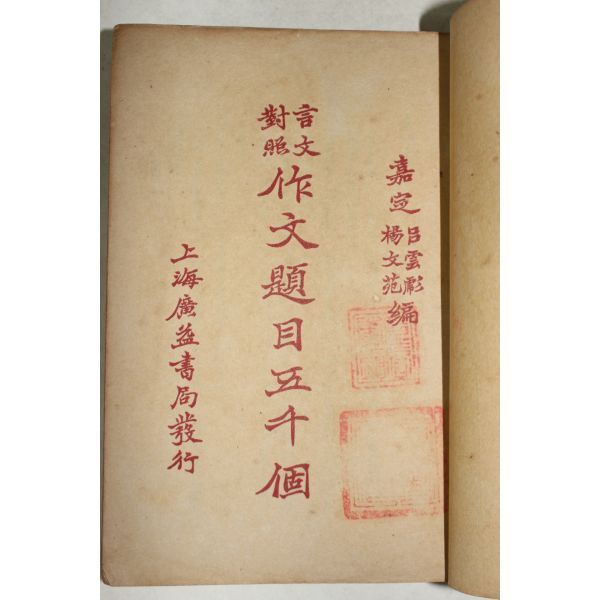 嘉定呂雲彪楊文苑編
言文對照作文題目五千個
上海廣益書局發行